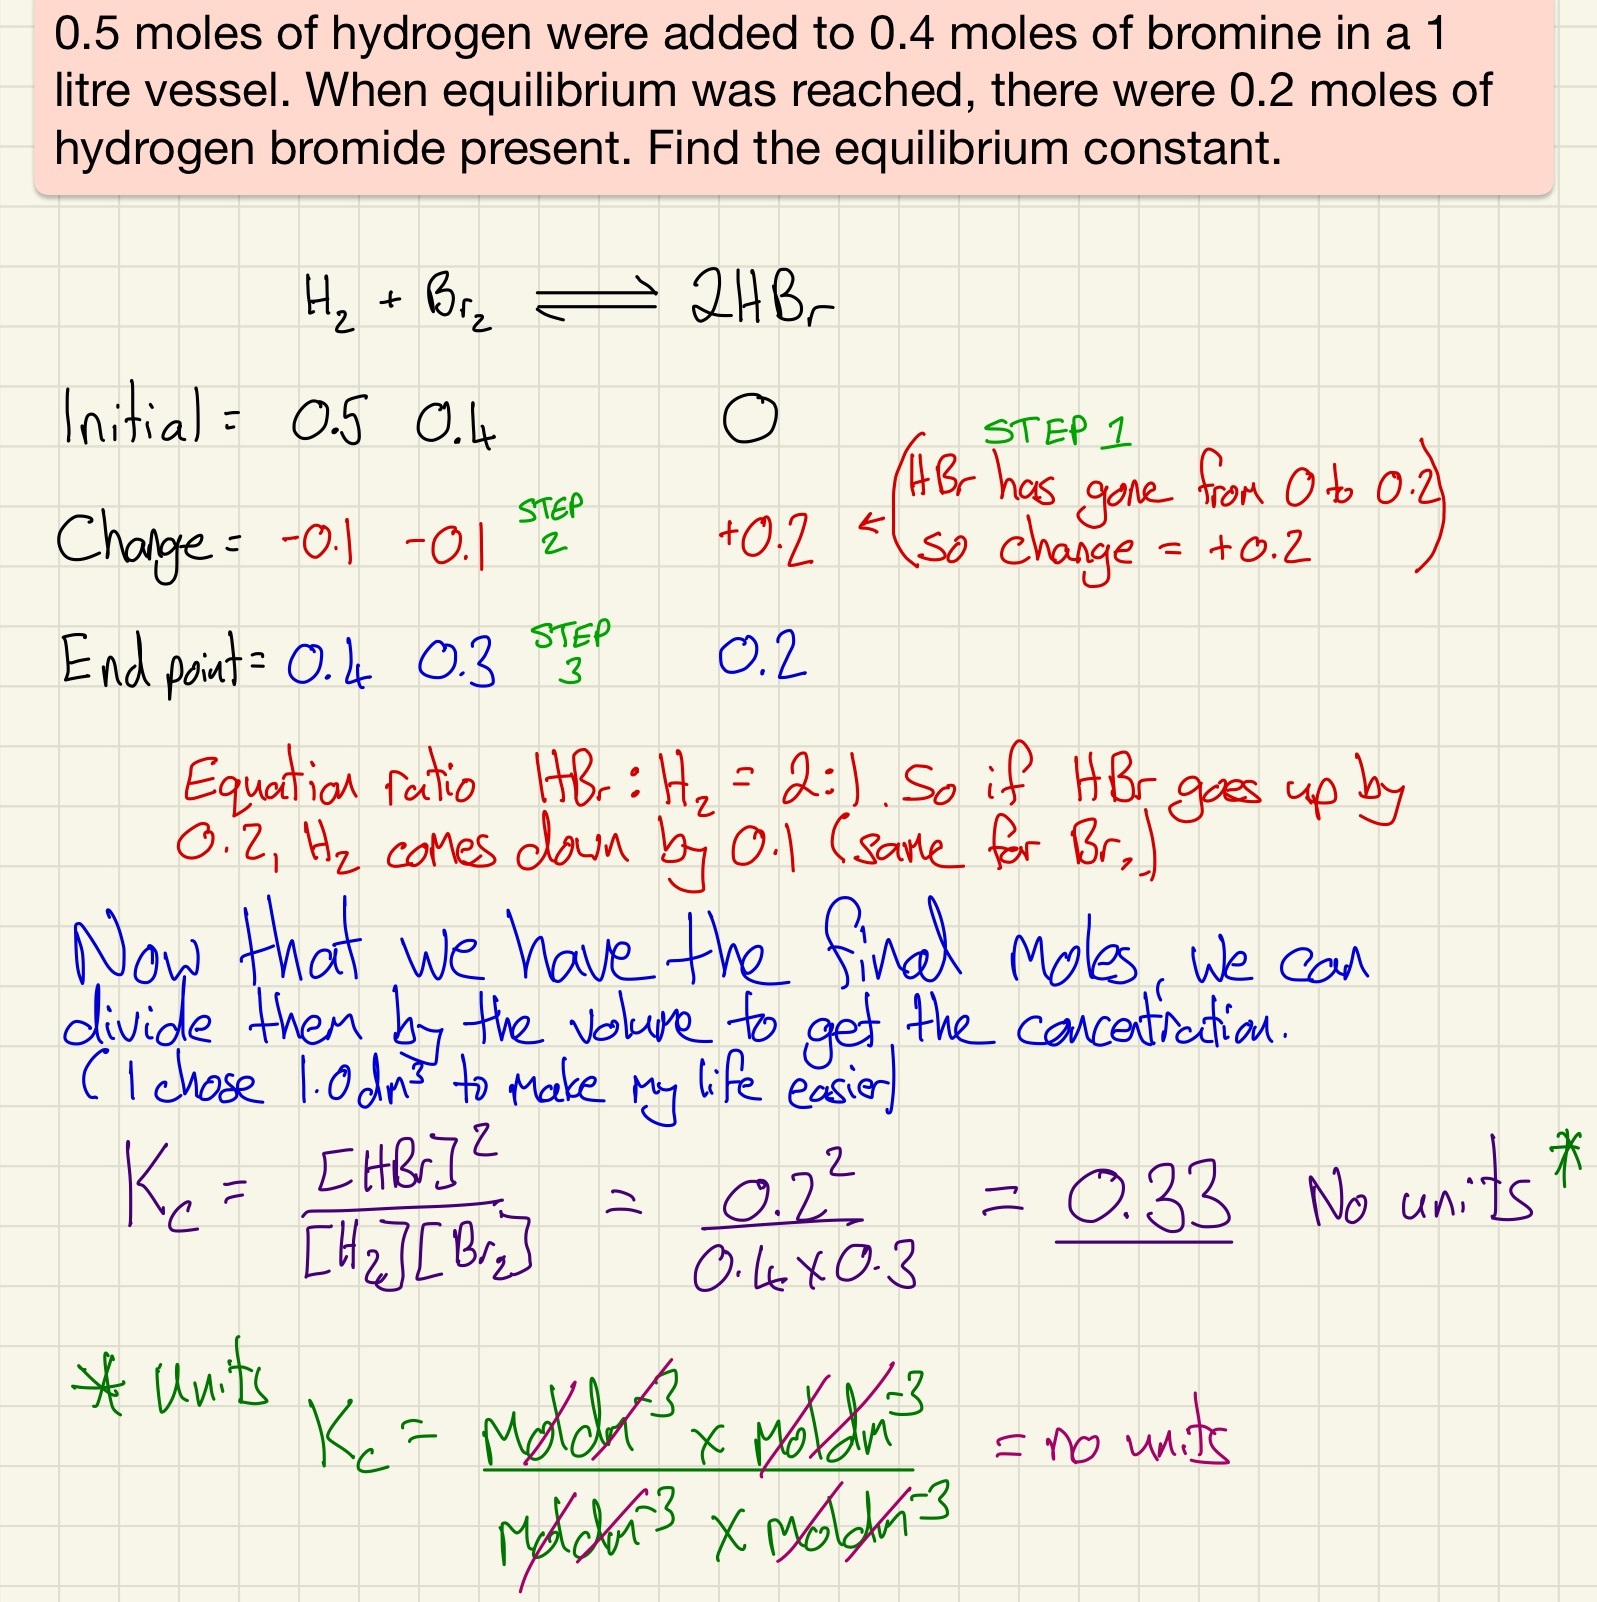 0.5 moles of hydrogen were added to 0.4 moles of bromine in a 1
litre vessel. When equilibrium was reached, there were 0.2 moles of
hydrogen bromide present. Find the equilibrium constant.
H₂ + Br₂ ⇌ 2HBr
Initial = 0.5 0.4 0
STEP 1
(HBr has gone from 0 to 0.2
so change = +0.2)
Change = -0.1 -0.1 STEP 2 +0.2 ←
End point = 0.4 0.3 STEP 3 0.2
Equation ratio HBr : H₂ = 2:1. So if HBr goes up by
0.2, H₂ comes down by 0.1 (same for Br₂)
Now that we have the final moles, we can
divide them by the volume to get the concentration.
(I chose 1.0dm³ to make my life easier)
Kc = [HBr]² / [H₂][Br₂] = 0.2² / 0.4 x 0.3 = 0.33 No units *
* units
Kc = moldm⁻³ x moldm⁻³ / moldm⁻³ x moldm⁻³ = no units